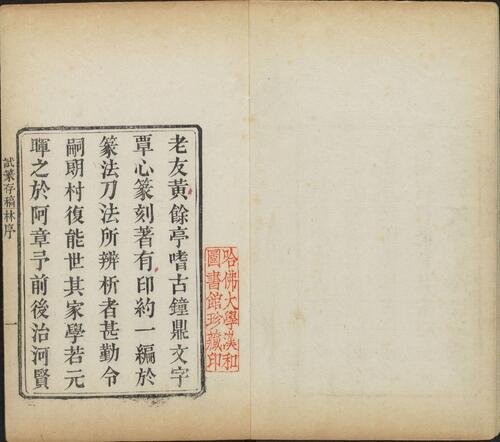 哈佛大學漢和
圖書館珍藏印
老友黃餘亭嗜古鐘鼎文字
覃心篆刻著有印約一編於
篆法刀法所辨析者甚勤令
嗣眀村復能世其家學若元
暉之於阿章予前後治河賢
試篆存稿林序
一